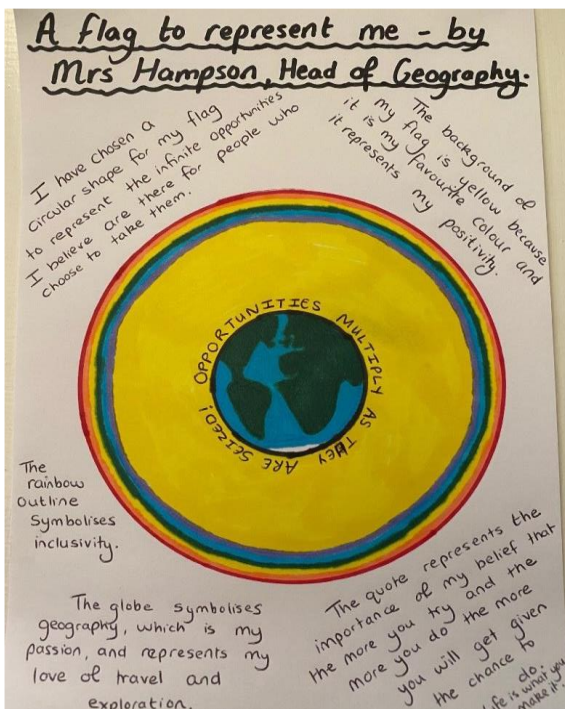 A flag to represent me - by
Mrs Hampson, Head of Geography.
I have chosen a
circular shape for my flag
to represent the infinite opportunities
I believe are there for people who
choose to take them.
The background of
my flag is yellow because
it is my favourite colour and
it represents my positivity.
OPPORTUNITIES MULTIPLY AS THEY ARE SEIZED!
The
rainbow
outline
symbolises
inclusivity.
The globe symbolises
geography, which is my
passion, and represents my
love of travel and
exploration.
The quote represents the
importance of my belief that
the more you try and the
more you do the more
you will get given
the chance to
do.
Life is what you
make it!